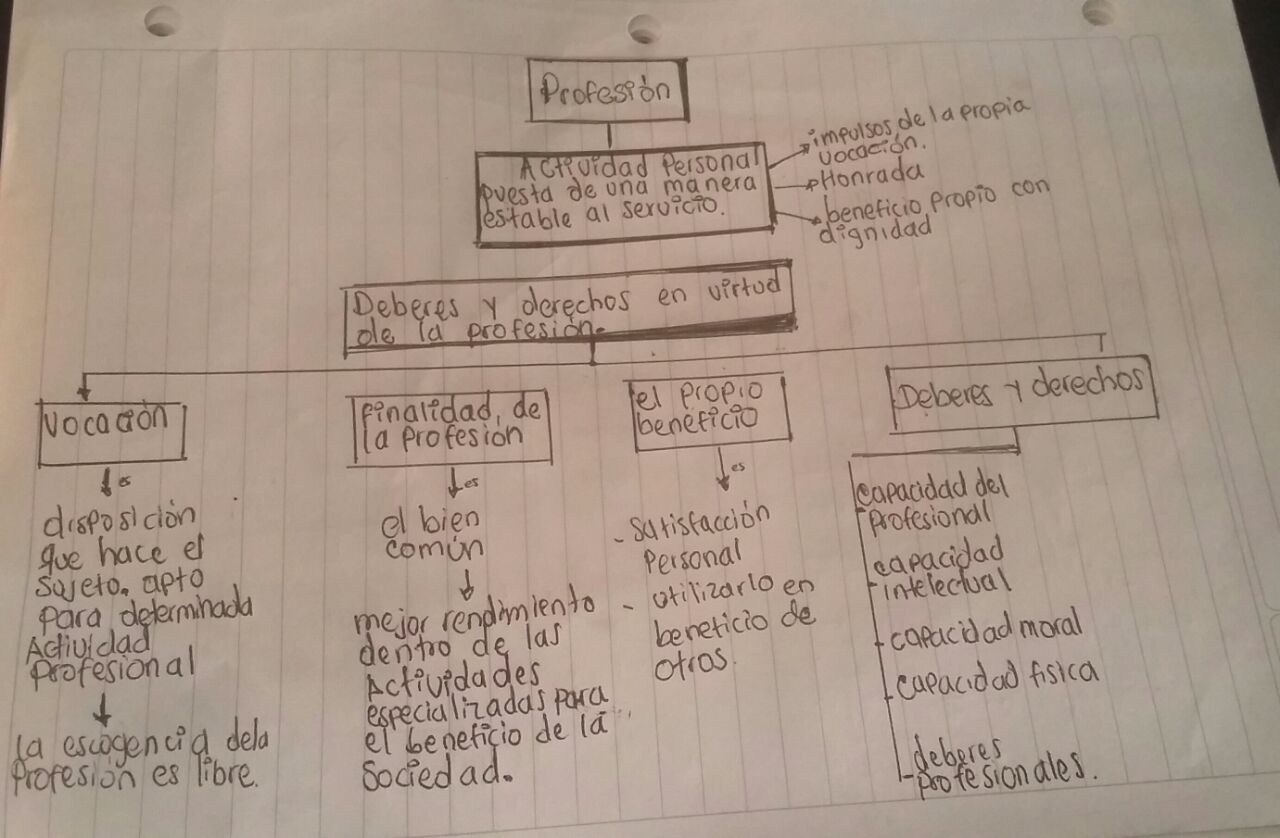 Profesión
Actividad Personal
puesta de una manera
estable al servicio.
impulsos de la propia
vocación.
Honrada
beneficio propio con
dignidad
Deberes y derechos en virtud
de la profesión.
Vocación
es
disposición
que hace el
sujeto. apto
para determinada
Actividad
Profesional
la escogencia dela
Profesión es libre.
finalidad, de
la profesión
es
el bien
común
mejor rendimiento
dentro de las
Actividades
especializadas para
el beneficio de la
Sociedad.
el propio
beneficio
es
- satisfacción
Personal
- utilizarlo en
beneficio de
otros.
Deberes y derechos
capacidad del
profesional
capacidad
intelectual
capacidad moral
capacidad fisica
deberes
profesionales.